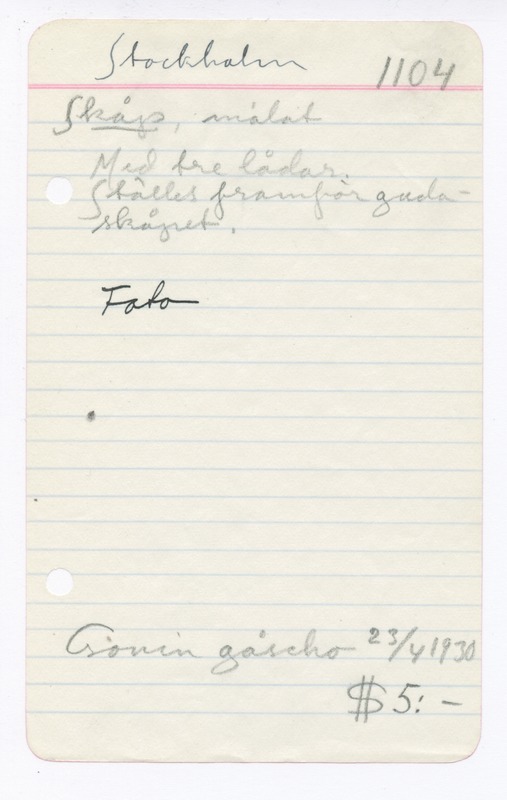 Stockholm 1104
Skåp, målat
Med tre lådar.
Ställes framför guda-
skåpet.
Foto
gåscho 23/4 1930
$ 5:-